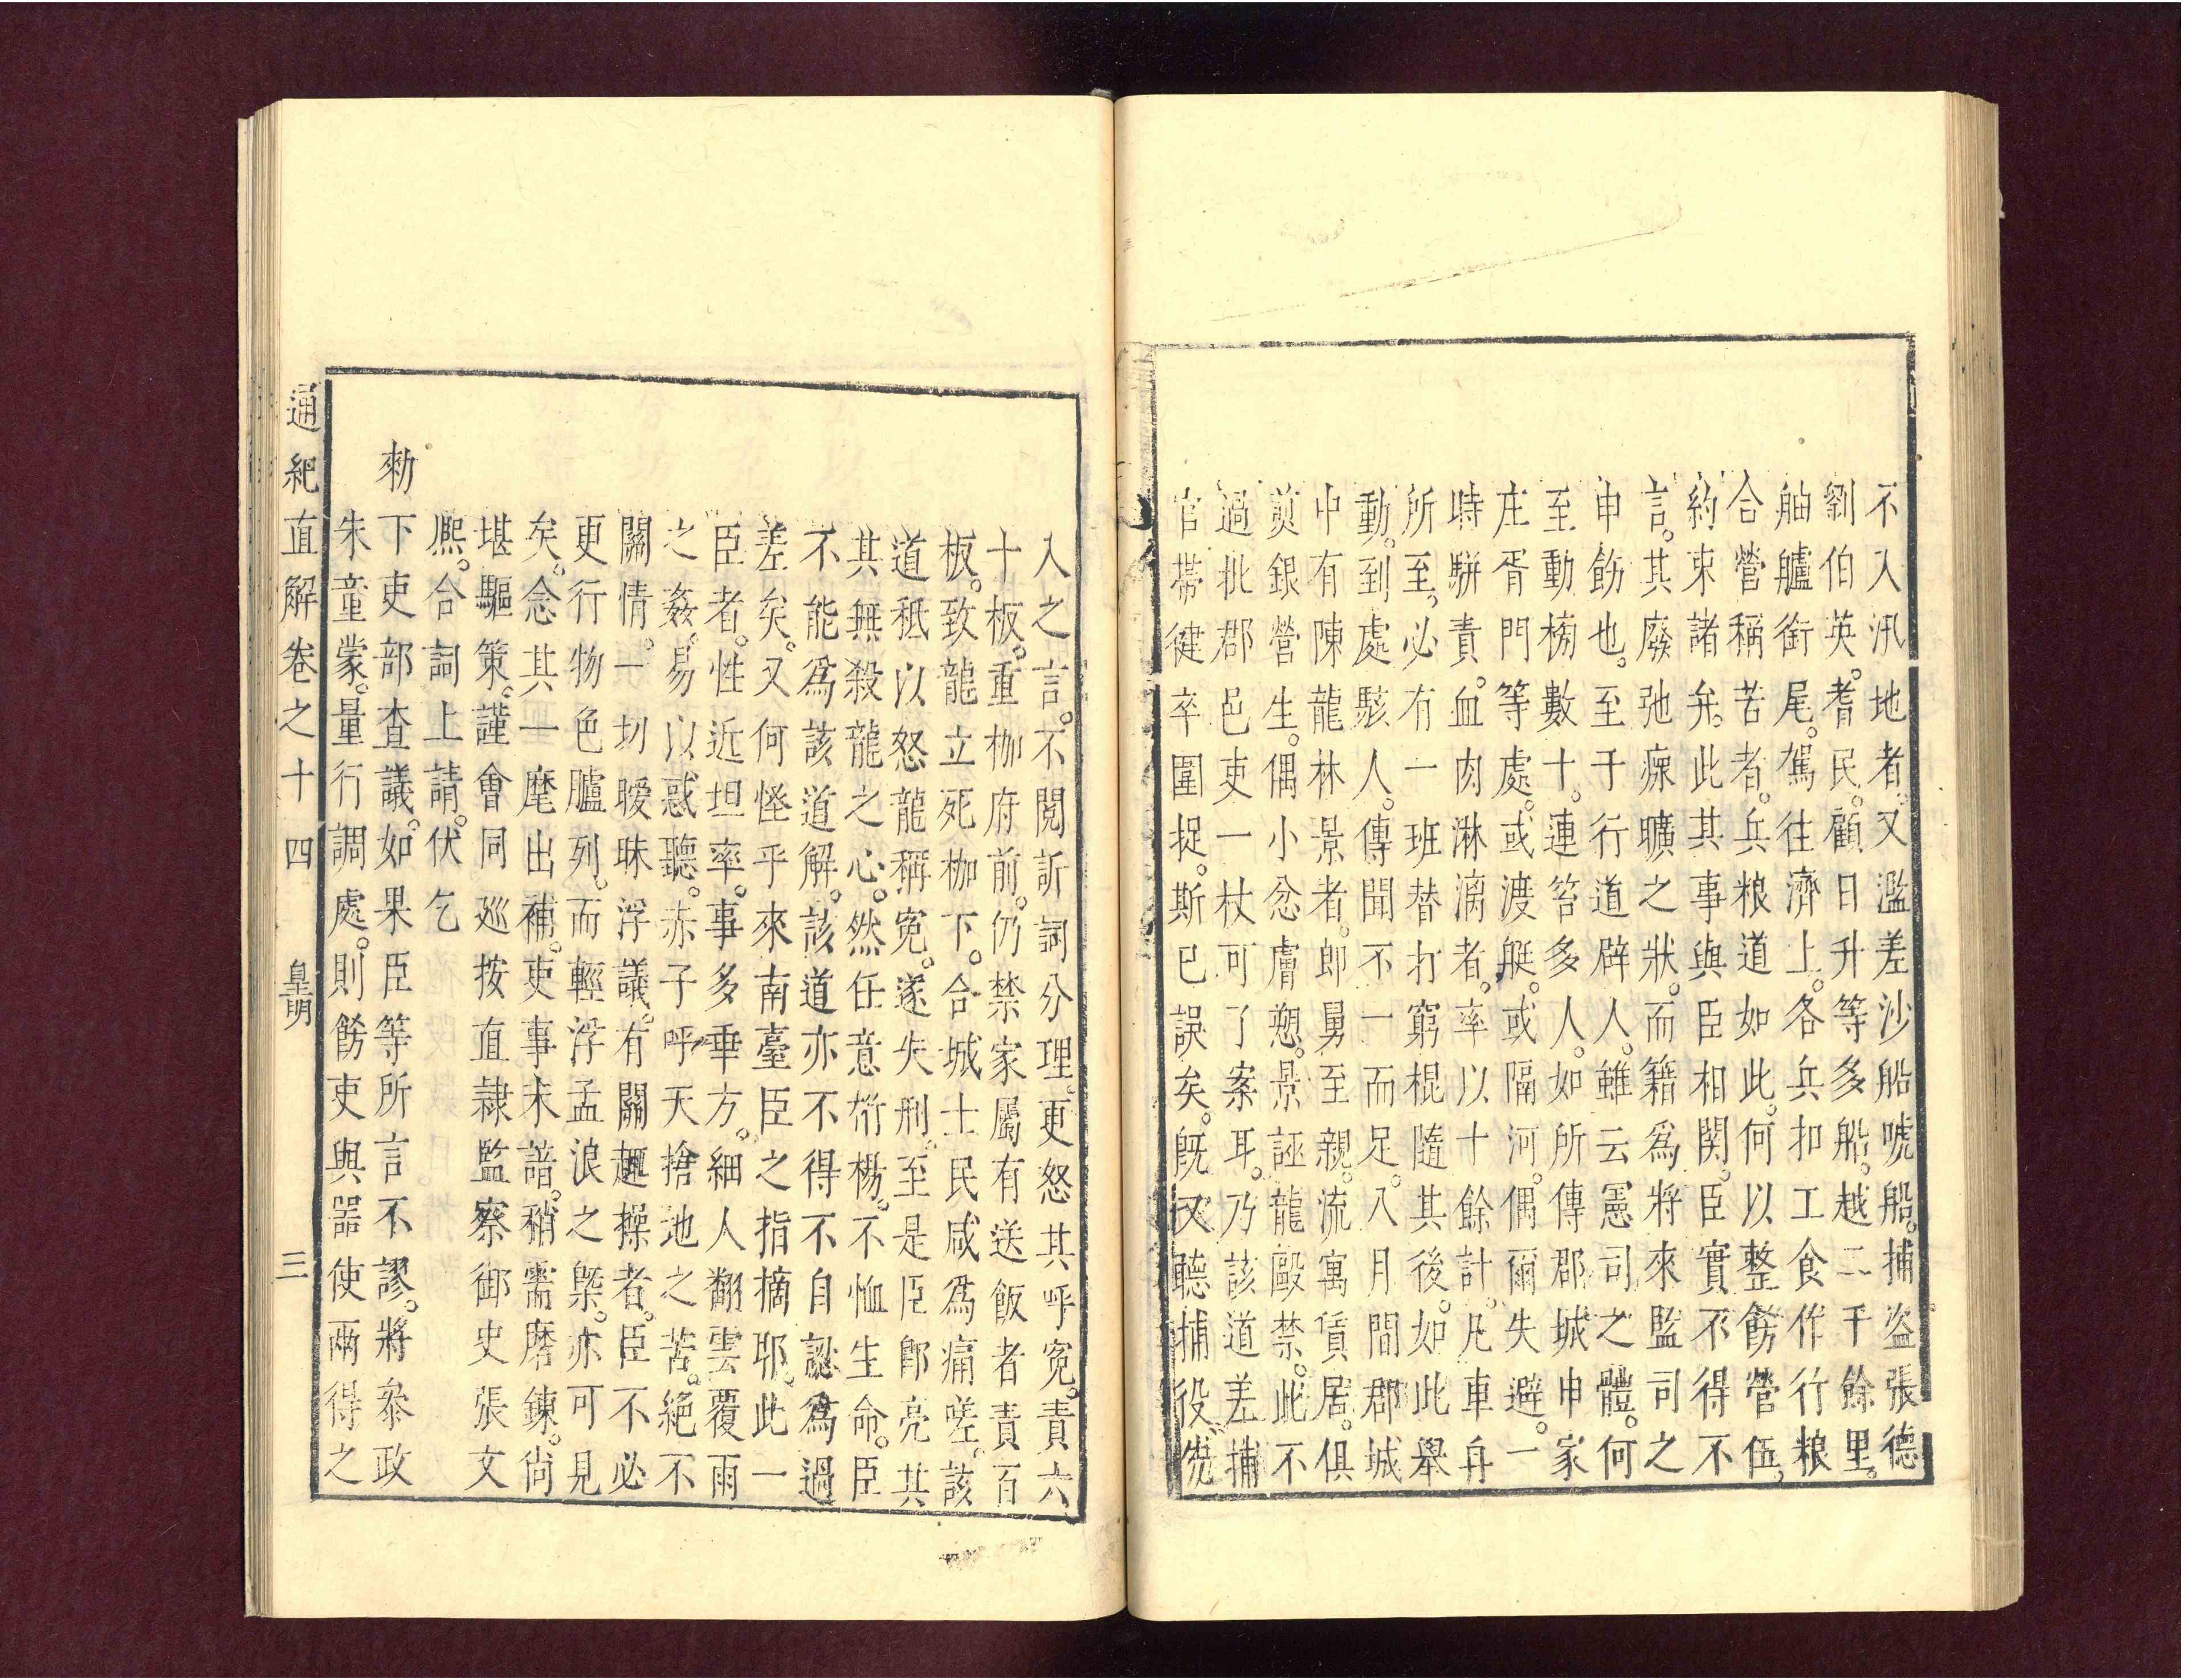 不入汛地者又濫差沙船唬船。捕盗張德
劉伯英。耆民。顧日升等多船。越二千餘里。
舳艫銜尾。駕往濟上。各兵扣工食作行粮
合營稱苦者。兵粮道如此。何以整飭營伍。
約束諸弁。此其事與臣相関。臣實不得不
言。其廢弛瘝曠之狀。而籍爲將來監司之
申飭也。至于行道辟人。雖云憲司之體。何
至動榜數十。連笞多人。如所傳郡城申家
庄胥門等處。或渡艇。或隔河。偶爾失避。一
時駢責。血肉淋漓者。率以十餘計。凡車舟
所至。必有一班替打窮棍隨其後。如此舉
動。到處駭人。傳聞不一而足。八月間郡城
中有陳龍林景者。郎舅至親。流寓賃居。俱
煎銀營生。偶小忿膚愬。景誣龍毆禁。此不
過批郡邑吏一杖可了案耳。乃該道差捕
官帶健卒圍捉。斯已誤矣。旣又聽捕役
人之言。不閱訴詞分理。更怒其呼寃。責六
十板。重枷府前。仍禁家屬有送飯者責百
板。致龍立死枷下。合城士民咸爲痛嗟。該
道秪以怒龍稱寃。遂失刑。至是臣郎亮其
其無殺龍之心。然任意桁楊。不恤生命。臣
不能爲該道解。該道亦不得不自認爲過
差矣。又何怪乎來南臺臣之指摘耶。此一
臣者。性近坦率。事多垂方。細人翻雲覆雨
之姦。易以惑聽。赤子呼天搶地之苦。絕不
關情。一切曖昧浮議。有關趣操者。臣不必
更行物色臚列。而輕浮孟浪之槩。亦可見
矣。念其一麾出補。吏事未諳。稍需磨鍊。尚
堪驅策。謹會同巡按直隷監察御史張文
熈。合詞上請。伏乞
勑下吏部查議。如果臣等所言不謬。將叅政
朱童蒙。量行調處。則飭吏與噐使兩得之
通紀直解卷之十四 皇明 三